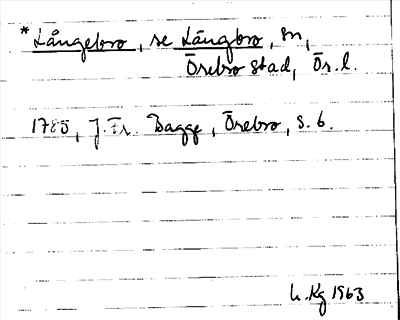 *Långebro, se Långbro, sn,
Örebro stad, Ör. l.
1785, J. Fr. Bagge, Örebro, s. 6.
h. Kg 1963